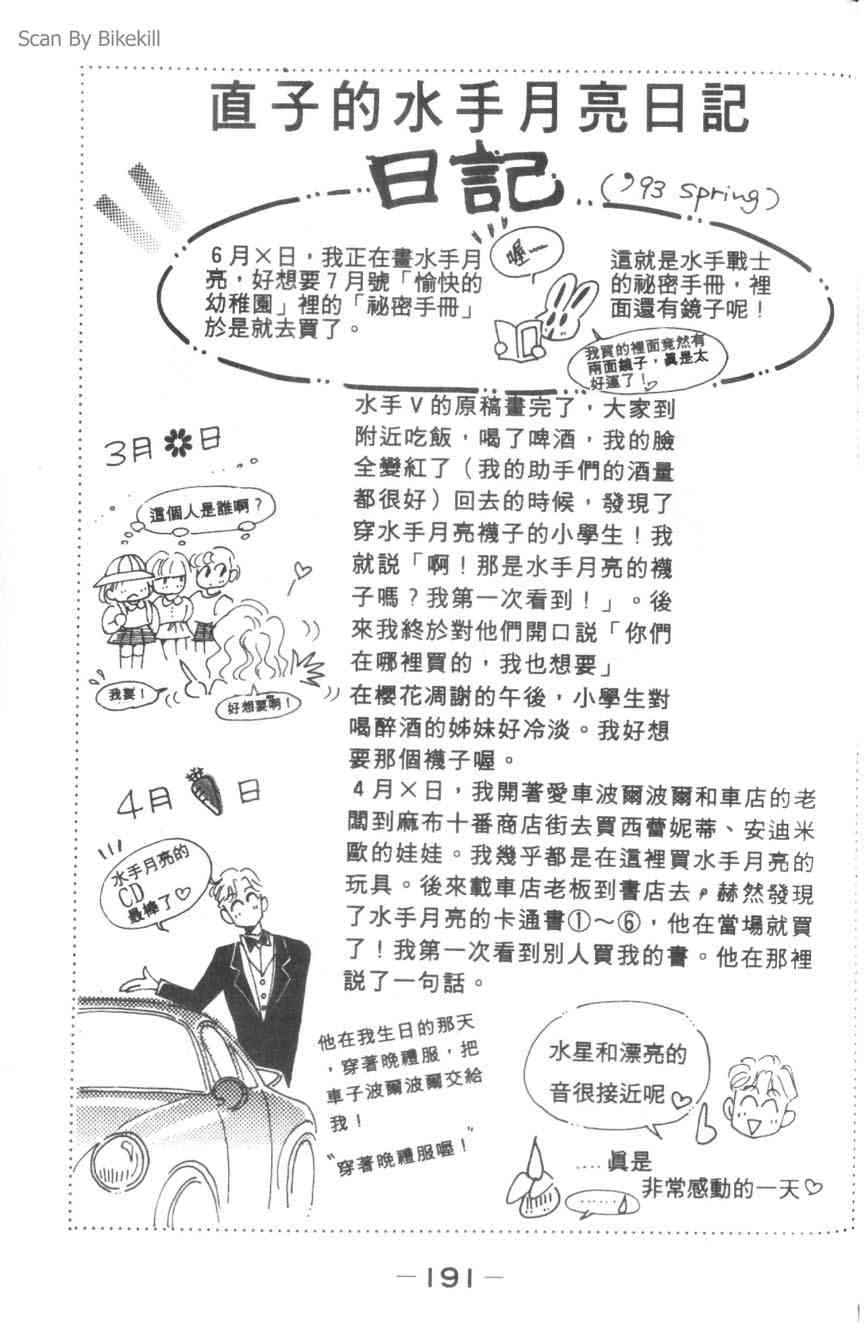 Scan By Bikekill
直子的水手月亮日記
日記
('93 spring)
6月×日，我正在畫水手月
亮，好想要7月號「愉快的
幼稚園」裡的「祕密手冊」
於是就去買了。
喔~~
這就是水手戰士
的祕密手冊，裡
面還有鏡子呢！
我買的裡面竟然有
兩面鏡子，眞是太
好運了！♡
3月 日
這個人是誰啊？
我要！
好想要啊！
水手V的原稿畫完了，大家到
附近吃飯，喝了啤酒，我的臉
全變紅了（我的助手們的酒量
都很好）回去的時候，發現了
穿水手月亮襪子的小學生！我
就説「啊！那是水手月亮的襪
子嗎？我第一次看到！」。後
來我終於對他們開口説「你們
在哪裡買的，我也想要」
在櫻花凋謝的午後，小學生對
喝醉酒的姊妹好冷淡。我好想
要那個襪子喔。
4月 日
水手月亮的
CD
最棒了♡
4月×日，我開著愛車波爾波爾和車店的老
闆到麻布十番商店街去買西蕾妮蒂、安迪米
歐的娃娃。我幾乎都是在這裡買水手月亮的
玩具。後來載車店老板到書店去，赫然發現
了水手月亮的卡通書①～⑥，他在當場就買
了！我第一次看到別人買我的書。他在那裡
説了一句話。
他在我生日的那天
，穿著晚禮服，把
車子波爾波爾交給
我！
"穿著晚禮服喔！"
水星和漂亮的
音很接近呢♡
……眞是
非常感動的一天♡
……
—191—